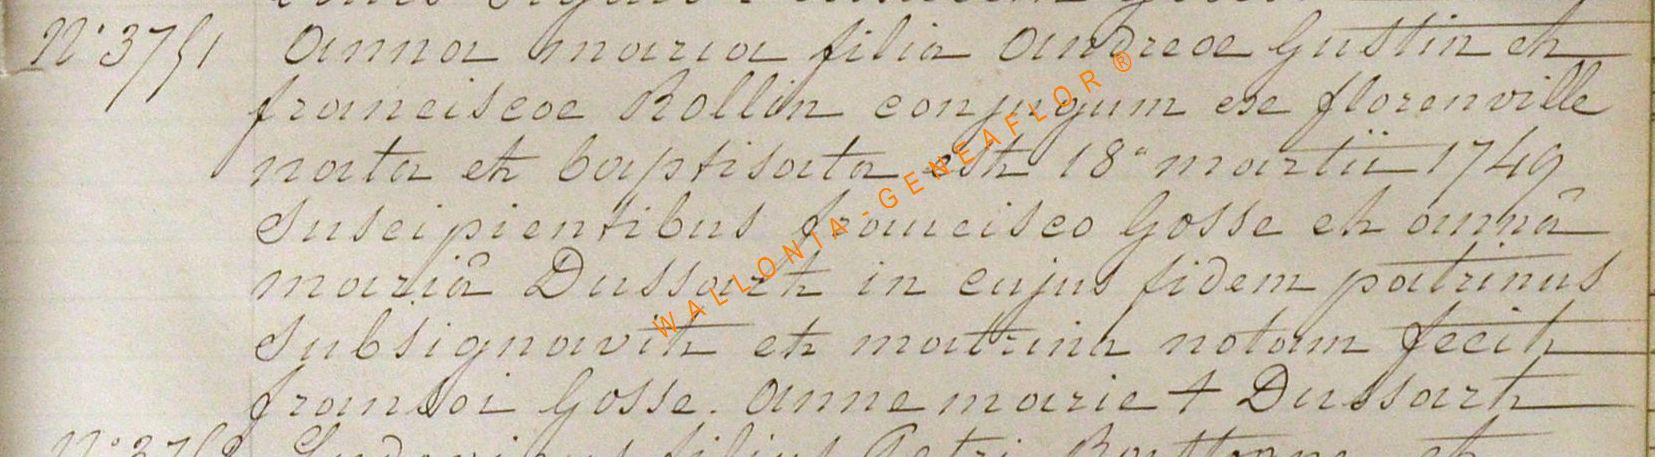 N° 3751 Anna maria filia Andreae Gustin et
franciscae Rollin conjugum ex florenville
nata et baptisata est 18ª martii 1749
suscipientibus francisco Gosse et annâ
mariâ Dussart in cujus fidem patrinus
subsignavit et matrina notam fecit
fransoi Gosse. anne marie + Dussart
N° 3752 Ludovicus filius Petri et
WALLONIA-GENEAFLOR ®